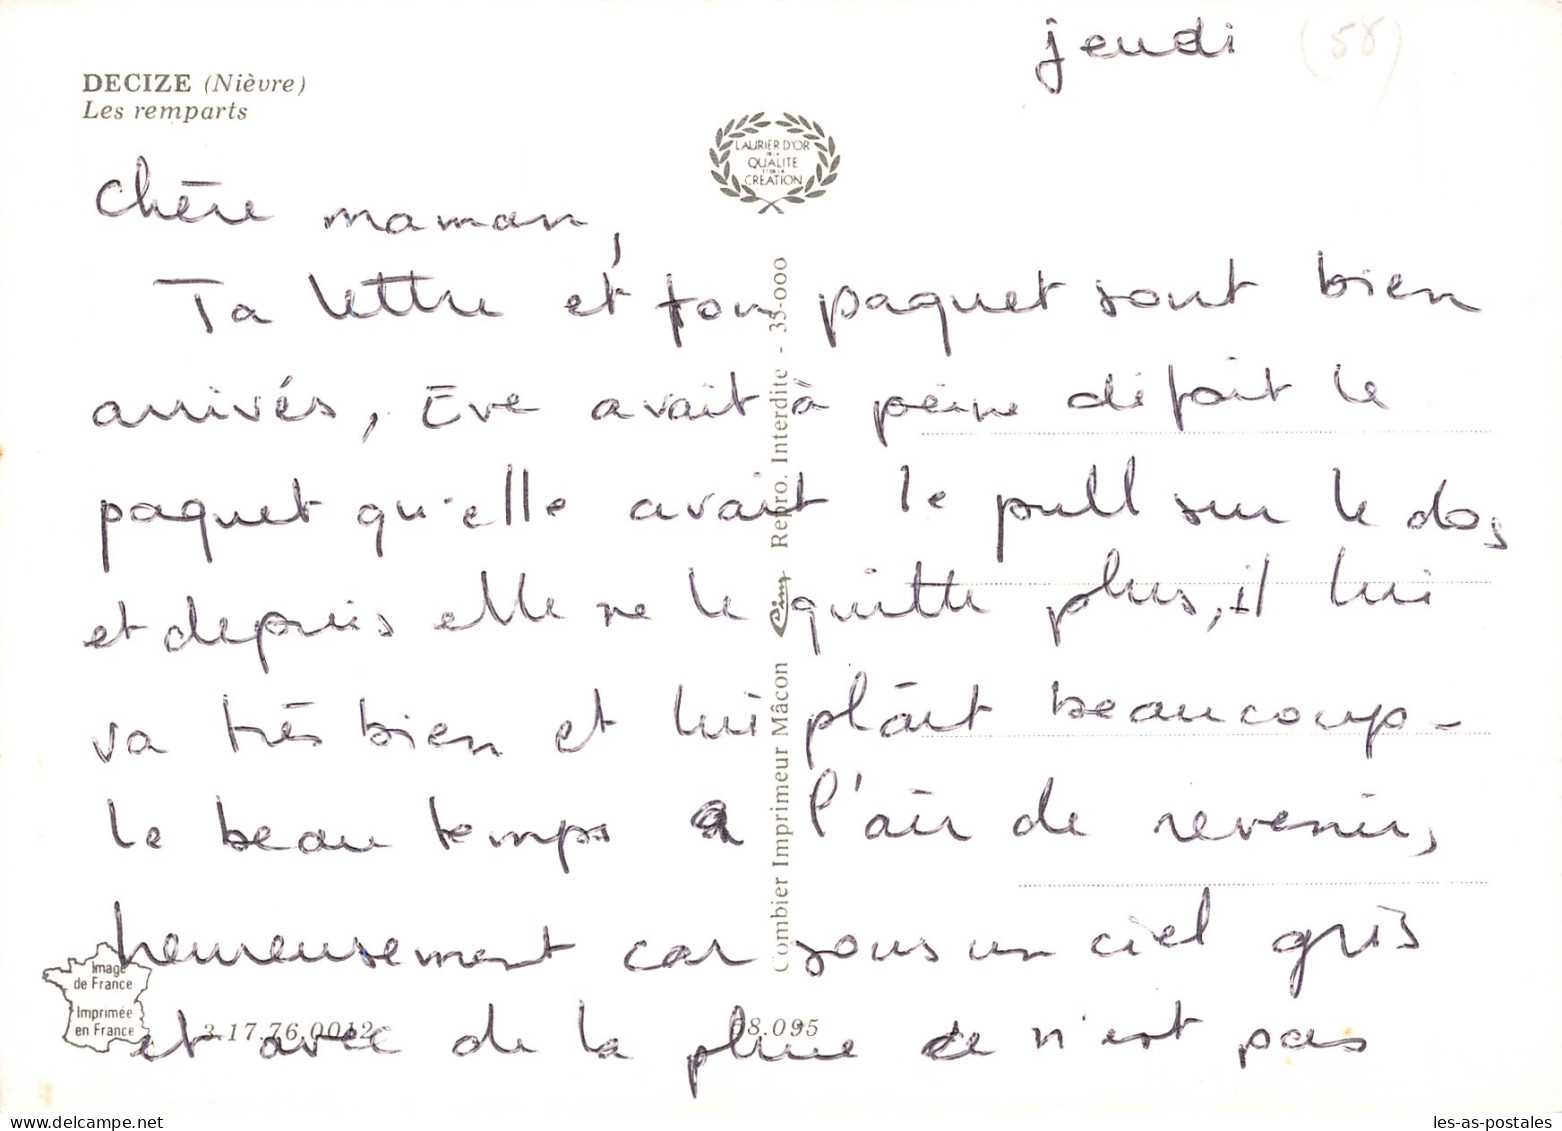 jeudi (58)
DECIZE (Nièvre)
Les remparts
LAURIER D'OR
DE LA
QUALITE
ET DE LA
CREATION
Chère maman,
Ta lettre et ton paquet sont bien
arrivés, Eve avait à peine défait le
paquet qu'elle avait le pull sur le dos,
et depuis elle ne le quitte plus, il lui
va très bien et lui plaît beaucoup -
le beau temps a l'air de revenir,
heureusement car sous un ciel gris
et avec de la pluie ce n'est pas
Combier Imprimeur Mâcon Cim Repro. Interdite - 35-000
Image
de France
Imprimée
en France
3.17.76.0012
58.095
les-as-postales
www.delcampe.net